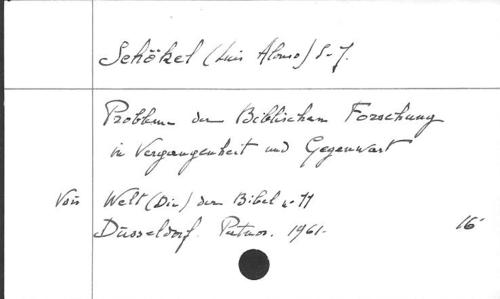 Schökel (Luis Alonso) S.J.
Probleme der Biblischen Forschung
in Vergangenheit und Gegenwart
Voir Welt (Die) der Bibel n. 11
Düsseldorf. Patmos. 1961. 16°